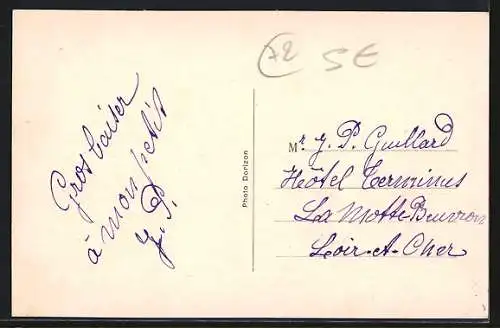 Gros baiser
à mon petit
J. P.
Photo Dorizon
72 SE
Mr J. P. Guillard
Hôtel Terminus
La Motte Beuvron
Loir-et-Cher